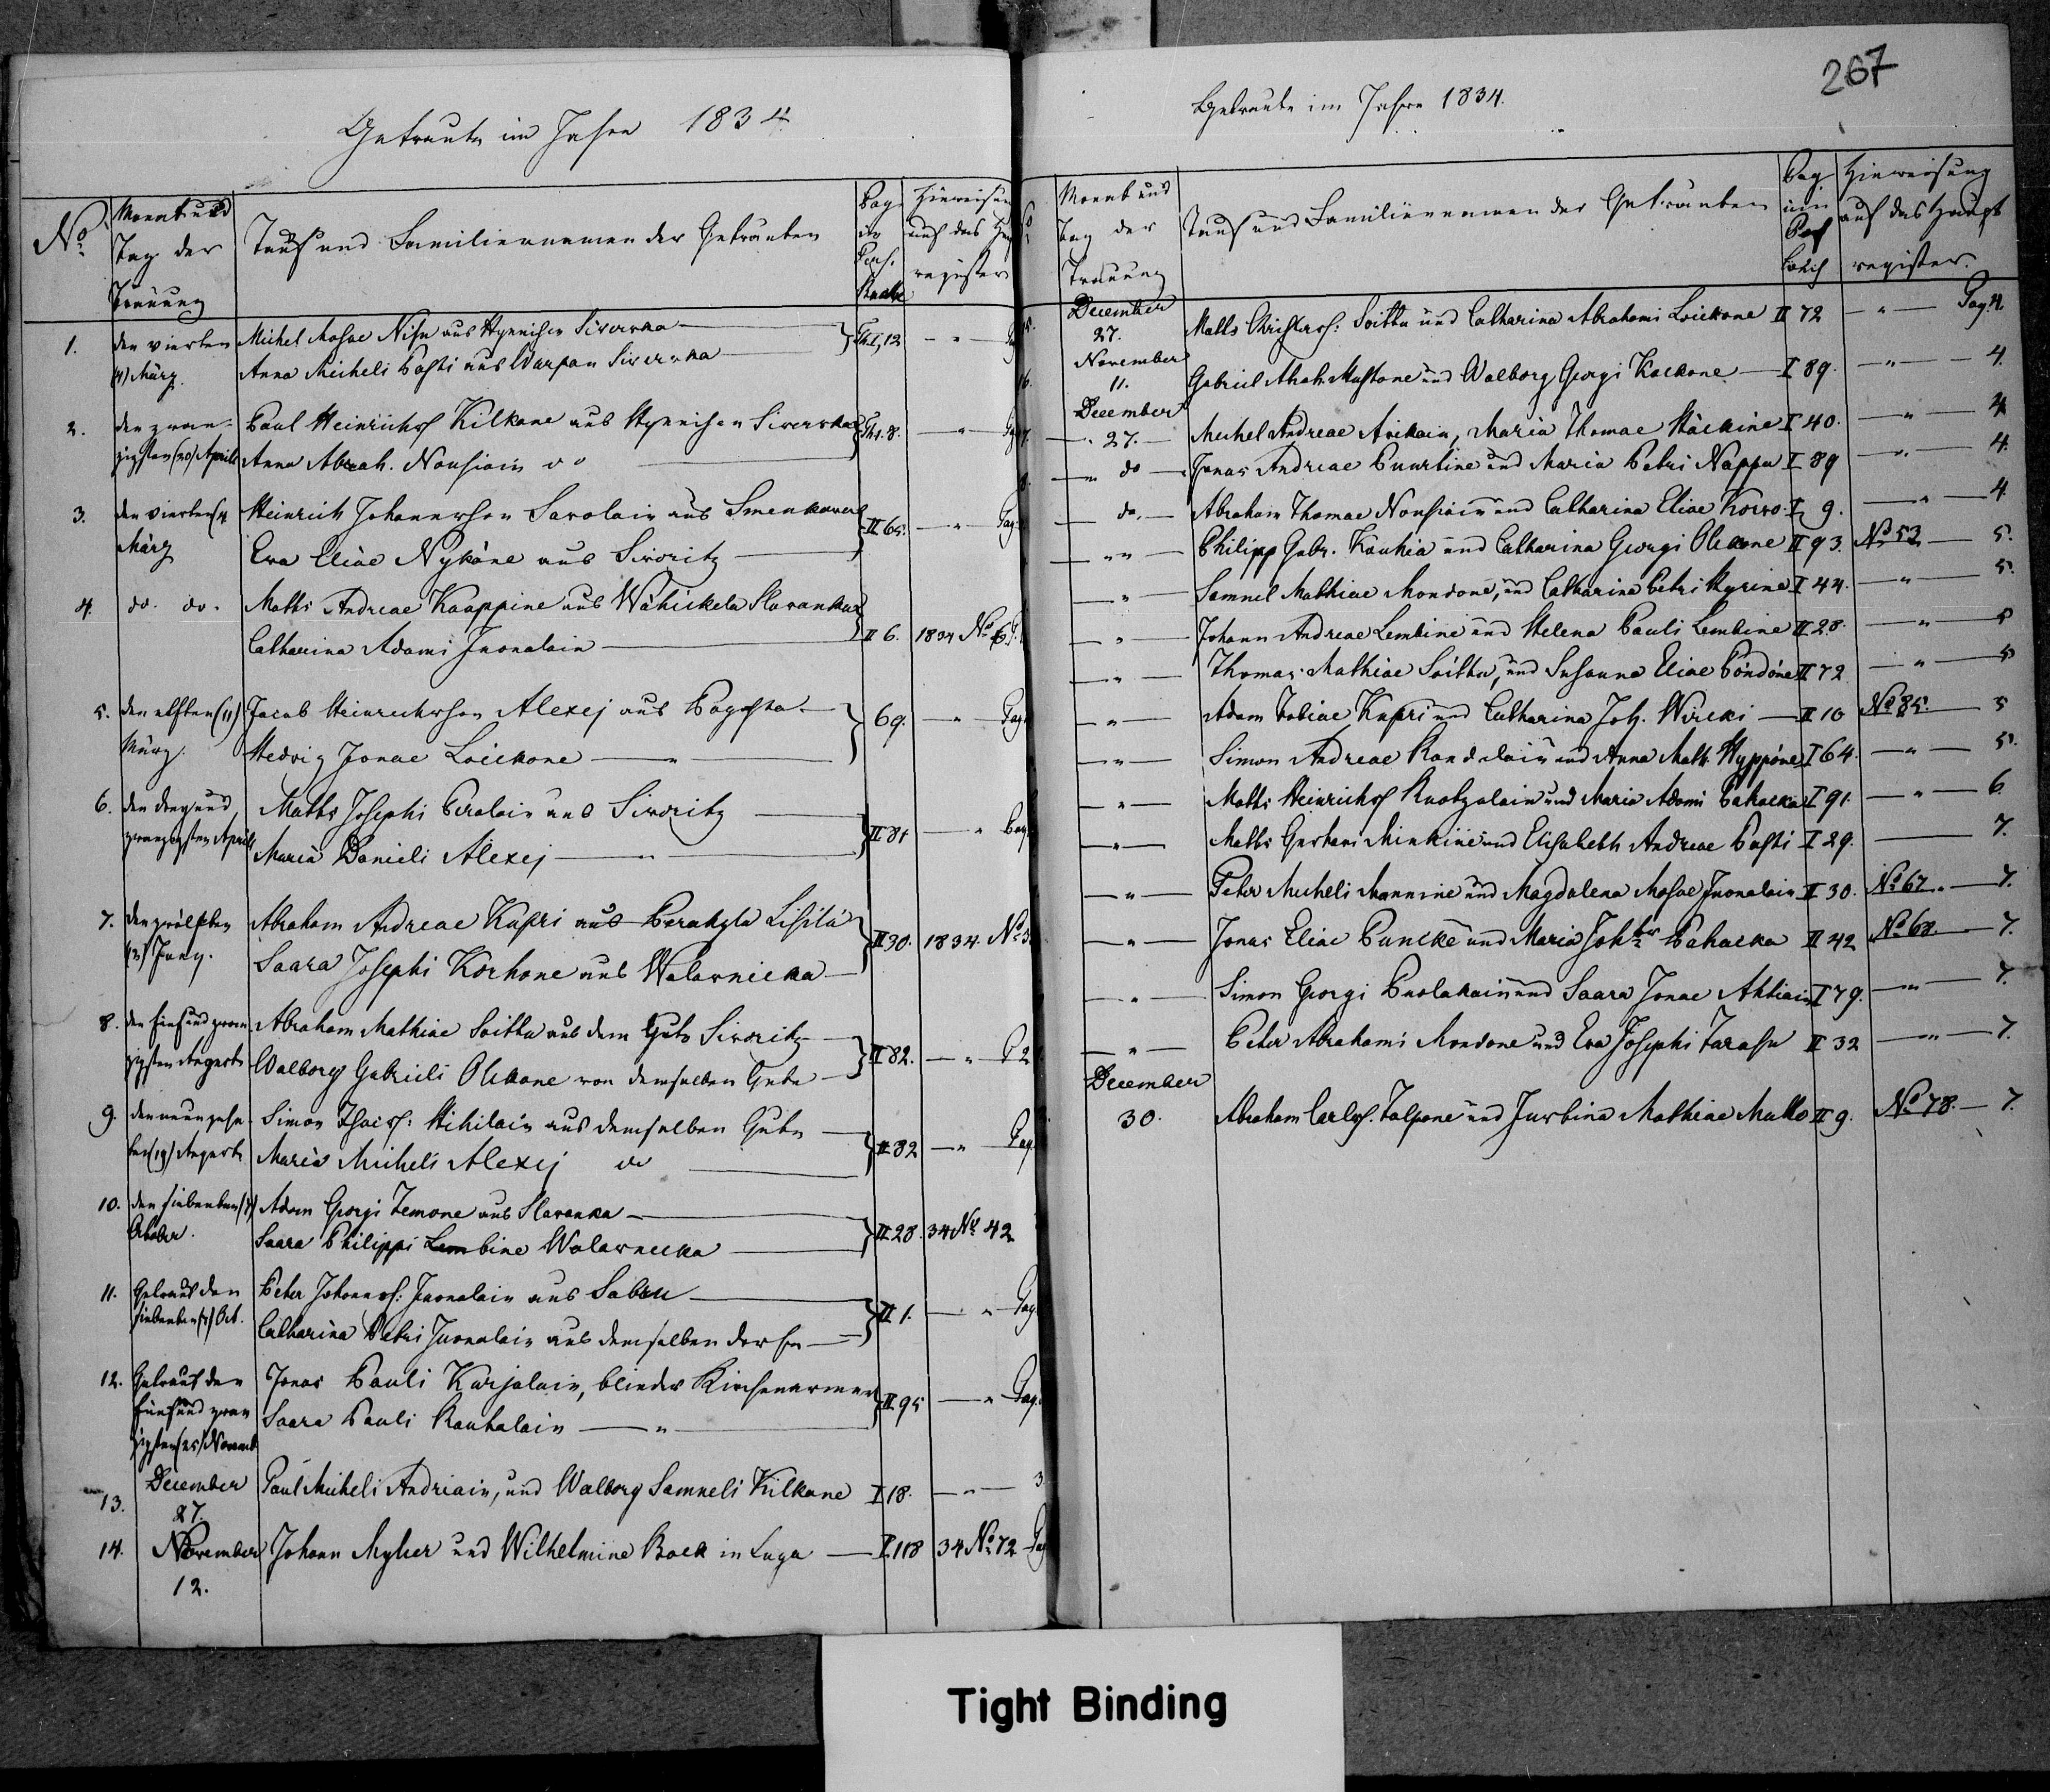 Getraute im Jahre 1834
No
Monat und
Tag der
Trauung
Tauf und Familiennamen der Getrauten
Pag
Hinweisung
auf das
register
1. den vierten Michel Mosae aus Siverska Th 1, 12 - " -
(4) März. Anna Micheli Pasti aus Siverska
2. den zwan- Paul Heinrichss Kilkane aus Siverska Th 1. 8. - " -
zigsten (20) April Anna Abrah. Nousiain do
3. den vierten (4 Heinrich Johannsson Savolain aus II 65. - " - Pag
März Eva Eliae Nykäne aus Sivoritz
4. do. do. Matts Andreae Kaappine aus Slavanka
Catharina Adami Juonalain II 6. 1834 No 6.
5. den elften (11) Jacob Heinrichsson Alexej aus 69. - " - Pag
März. Hedvig Jonae Loickone - " -
6. den drey und Matts Josephi aus Sivoritz
zwanzigsten April Maria Danieli Alexej - " - II 81 - " - Pag
7. den zwölften Abraham Andreae Kapri aus
(12) Juny. Saara Josephi Korhone aus Walarnicka II 30. 1834. No 3
8. den fünf und zwan Abraham Mathiae Soittu aus dem Gute Sivoritz
zigsten August Walborg Gabrieli Olckone von demselben Gute II 82. - " - P 2
9. den neunzehn Simon Hihilain aus demselben Gute
ten (19) August Maria Micheli Alexej do II 82 - " - Pag
10. den siebenten (7) Adam Georgi Temone aus Slavanka
October. Saara Philippi Lembine Walarnicka II 28. 34 No 42
11. Getraut den Peter Johannss: Juonalain aus
siebenten (7) Oct. Catharina Petri Juonalain aus demselben Dorfe II 1. - " - Pag
12. Getraut den Jonas Pauli Karjalain, blinder Kirchenarmer
fünf und zwan Saara Pauli Rauhalain - " - II 95 - " - Pag.
zigsten (25) Novemb
13. December Paul Micheli Andriain, und Walborg Samueli Kilkane I 18. - " - 3
27.
14. November Johann Myher und Wilhelmine Bock in Luga I 118 34 No 72 Pag
12.
267
Getraute im Jahre 1834.
Monat und
Tag der
Trauung
Tauf und Familiennamen der Getrauten
Pag
im
Buch
Hinweisung
auf das Haupt
register.
15. December
27. Matts Christerss: Soittu und Catharina Abrahami Loickone II 72 - " - Pag 4.
16. November
11. Gabriel Abrah. Mustone und Walborg Georgi Kackone I 89. - " - 4
December
7. - " 27. - Michel Andreae Avikain, Maria Thomae Häckine I 40. - " - 4
8. - " do - Jonas Andreae Puurtine und Maria Petri Nappu I 89 - " - 4.
do. - Abraham Thomae Nousiain und Catharina Eliae Korvo. I 9. - " - 4
- " " - Philipp Gabr. Kauhia und Catharina Georgi Olckone II 93. No 53 - 5.
- " - Samuel Mathiae Mondone, und Catharina Petri Hyrine I 44. - " - 5.
- " - Johann Andreae Lembine und Helena Pauli Lembine II 28. - " - 5
- " - Thomas Mathiae Soittu, und Susanna Eliae Pöndöne II 72 - " - 5
- " - Adam Tobiae Kapri und Catharina Joh. Wircki II 10 No 85. - 5
- " - Simon Andreae und Anna Math. Hyppöne I 64. - " - 5.
- " - Matts Heinrichss Ruotzalain und Maria Adami Pakacka I 91. - " - 6.
- " - Matts Gustavi Minkine und Elisabeth Andreae Pasti I 29. - 7.
- " - Peter Micheli Mannine und Magdalena Mosae Juonalain II 30. No 67 - 7.
- " - Jonas Eliae Puncke und Maria Johtr Pakacka II 42 No 68. - 7.
- " - Simon Georgi Puolakain und Saara Jonae Ahtiain I 79. - " - 7.
- " - Peter Abrahami Mondone und Eva Josephi Tarasu II 32 - " - 7.
December
30. Abraham Carlss. Talpone und Justina Mathiae Mutto II 9. No 78. - 7.
Tight Binding